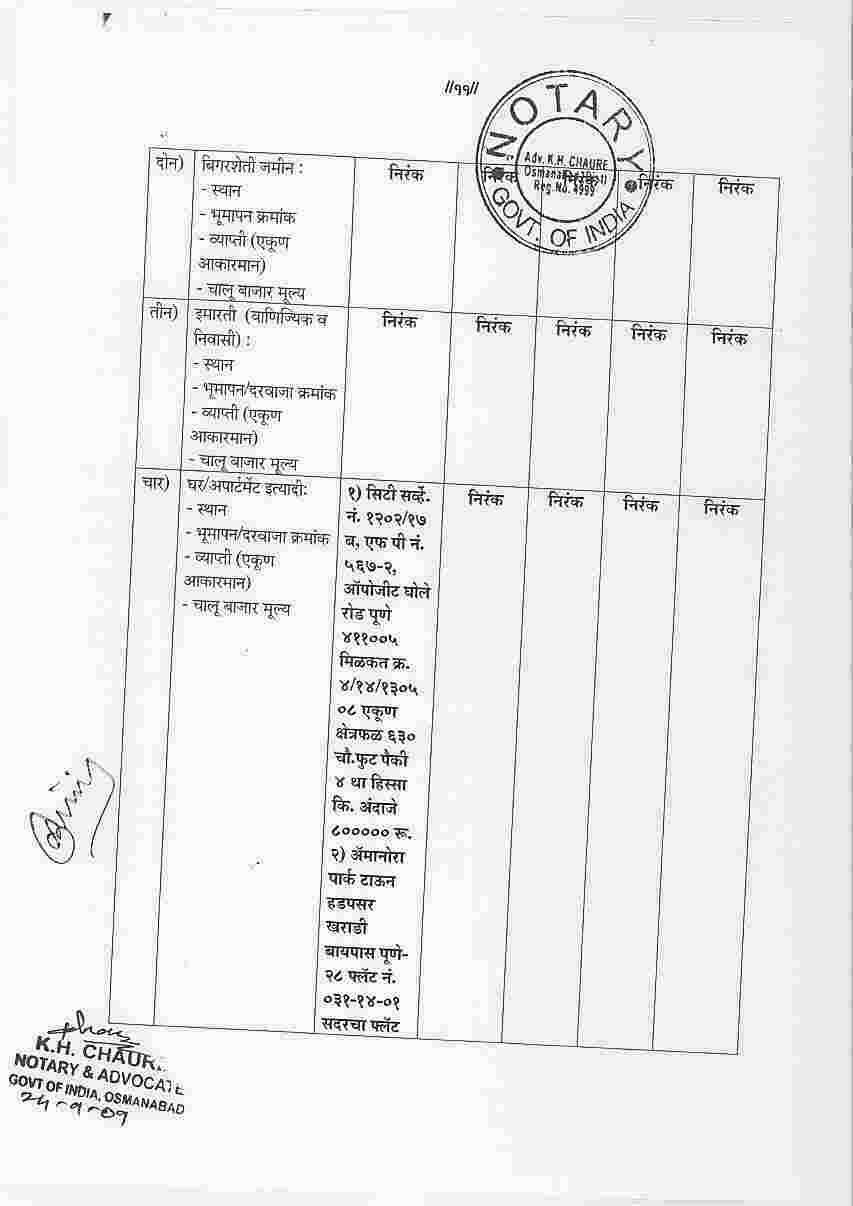 //११//
NOTARY
Adv. K.H. CHAURE
Reg.No. 4999
GOVT. OF INDIA
दोन) बिगरशेती जमीन : निरंक निरंक निरंक निरंक निरंक
- स्थान
- भूमापन क्रमांक
- व्याप्ती (एकूण
आकारमान)
- चालू बाजार मूल्य
तीन) इमारती (वाणिज्यिक व निरंक निरंक निरंक निरंक निरंक
निवासी) :
- स्थान
- भूमापन/दरवाजा क्रमांक
- व्याप्ती (एकूण
आकारमान)
- चालू बाजार मूल्य
चार) घर/अपार्टमेंट इत्यादी:
- स्थान
- भूमापन/दरवाजा क्रमांक
- व्याप्ती (एकूण
आकारमान)
- चालू बाजार मूल्य
१) सिटी सर्व्हे.
नं. १२०२/१७
ब, एफ पी नं.
५६७-२,
ऑपोजीट घोले
रोड पूणे
४११००५
मिळकत क्र.
४/१४/१३०५
०८ एकूण
क्षेत्रफळ ६३०
चौ.फुट पैकी
४ था हिस्सा
कि. अंदाजे
८००००० रू.
२) ॲमानोरा
पार्क टाऊन
हडपसर
खराडी
बायपास पूणे-
२८ फ्लॅट नं.
०३१-१४-०१
सदरचा फ्लॅट
निरंक निरंक निरंक निरंक
K.H. CHAURE
NOTARY & ADVOCATE
GOVT OF INDIA, OSMANABAD
24-9-09